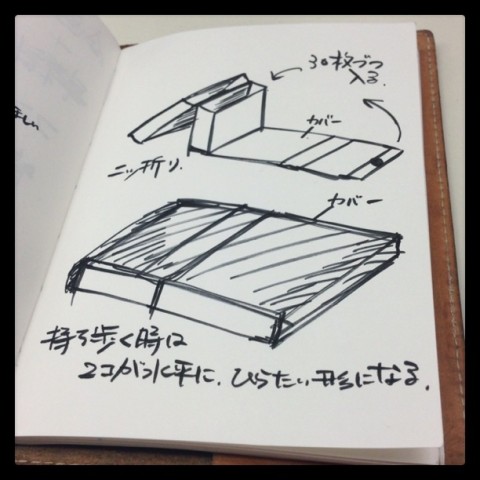 ほしい
30枚づつ
入る。
カバー
二ッ折り。
カバー
持ち歩く時は
2コが水平に、ひらたい形になる。